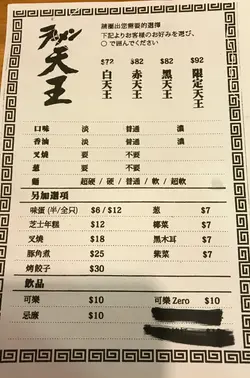 ラーメン
天王
請圈出您需要的選擇
下記よりお客様のお好みを選び、
○で囲んでください
$72 $82 $82 $92
白天王 赤天王 黑天王 限定天王
口味 淡 普通 濃
香油 淡 普通 濃
叉燒 要 不要
葱 要 不要
麵 超硬 / 硬 / 普通 / 軟 / 超軟
另加選項
味蛋 (半/全只) $6 / $12 葱 $7
芝士年糕 $12 椰菜 $7
叉燒 $18 黑木耳 $7
豚角煮 $25 紫菜 $7
烤餃子 $30
飲品
可樂 $10 可樂 Zero $10
忌廉 $10